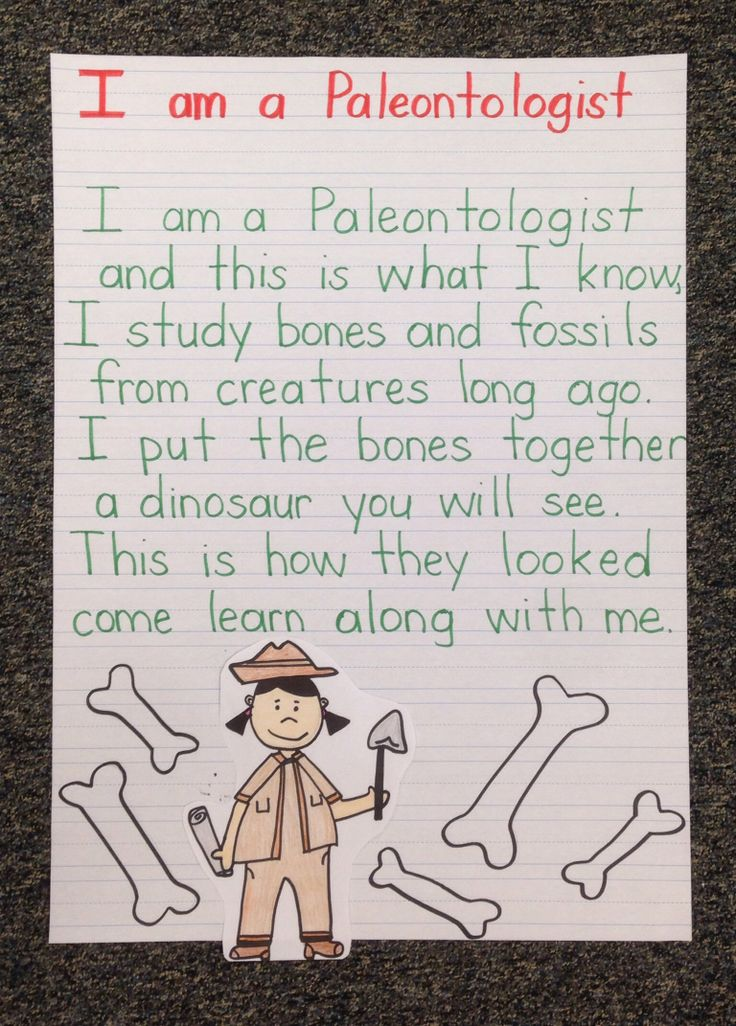 I am a Paleontologist
I am a Paleontologist
and this is what I know,
I study bones and fossils
from creatures long ago.
I put the bones together
a dinosaur you will see.
This is how they looked
come learn along with me.